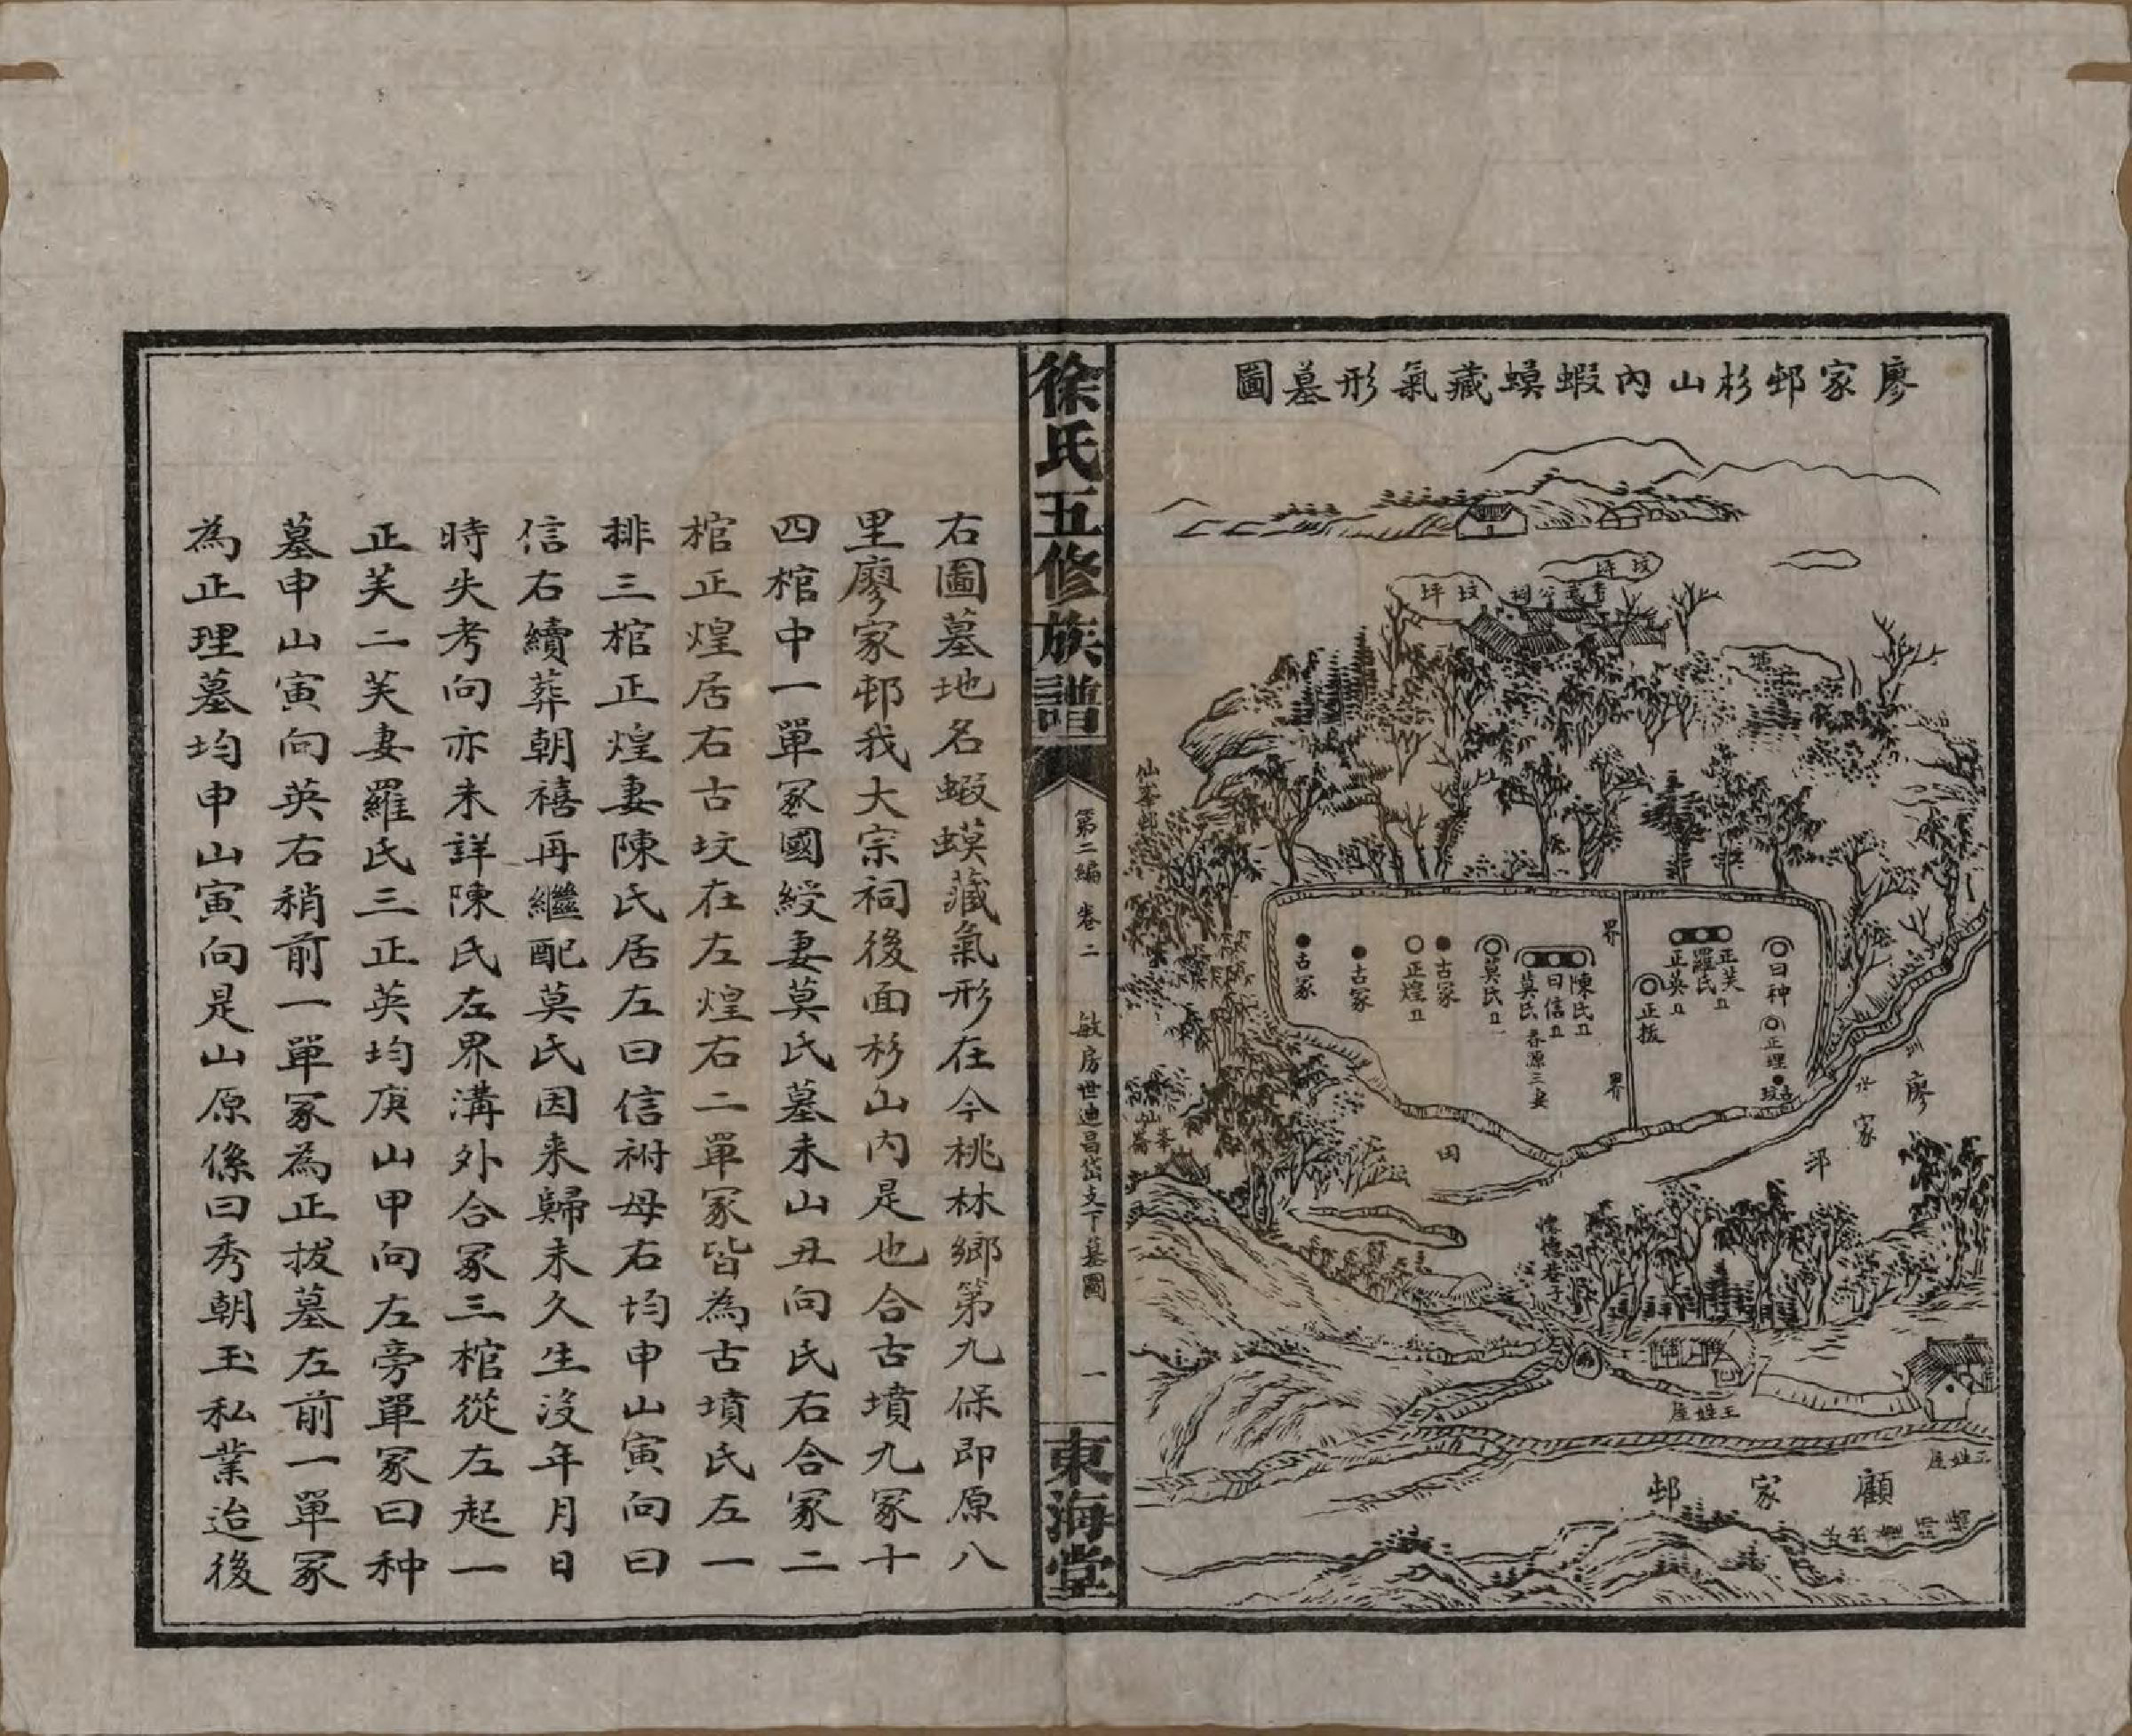 廖家邨杉山內蝦蟆藏氣形墓圖
坟坪
坟坪
塘
仙峯邨
古冢
古冢
古冢
正煌
莫氏
陳氏
曰信
莫氏
春源三妻
界
界
正芺
羅氏
正英
正拔
曰种
正理
古坟
田
水
廖家邨
王姓屋
王姓屋
顧家邨
徐氏五修族譜
第二編 卷二
敏房世迪昌岱支下墓圖
一
東海堂
右圖墓地名蝦蟆藏氣形在今桃林鄉第九保即原八
里廖家邨我大宗祠後面杉山內是也合古墳九冢十
四棺中一單冢國綬妻莫氏墓未山丑向氏右合冢二
棺正煌居右古坟在左煌右二單冢皆為古墳氏左一
排三棺正煌妻陳氏居左曰信祔母右均申山寅向曰
信右續葬朝禧再繼配莫氏因来歸未久生没年月日
時失考向亦未詳陳氏左界溝外合冢三棺從左起一
正芺二芺妻羅氏三正英均庚山甲向左旁單冢曰种
墓申山寅向英右稍前一單冢為正拔墓左前一單冢
為正理墓均申山寅向是山原係曰秀朝玉私業迨後